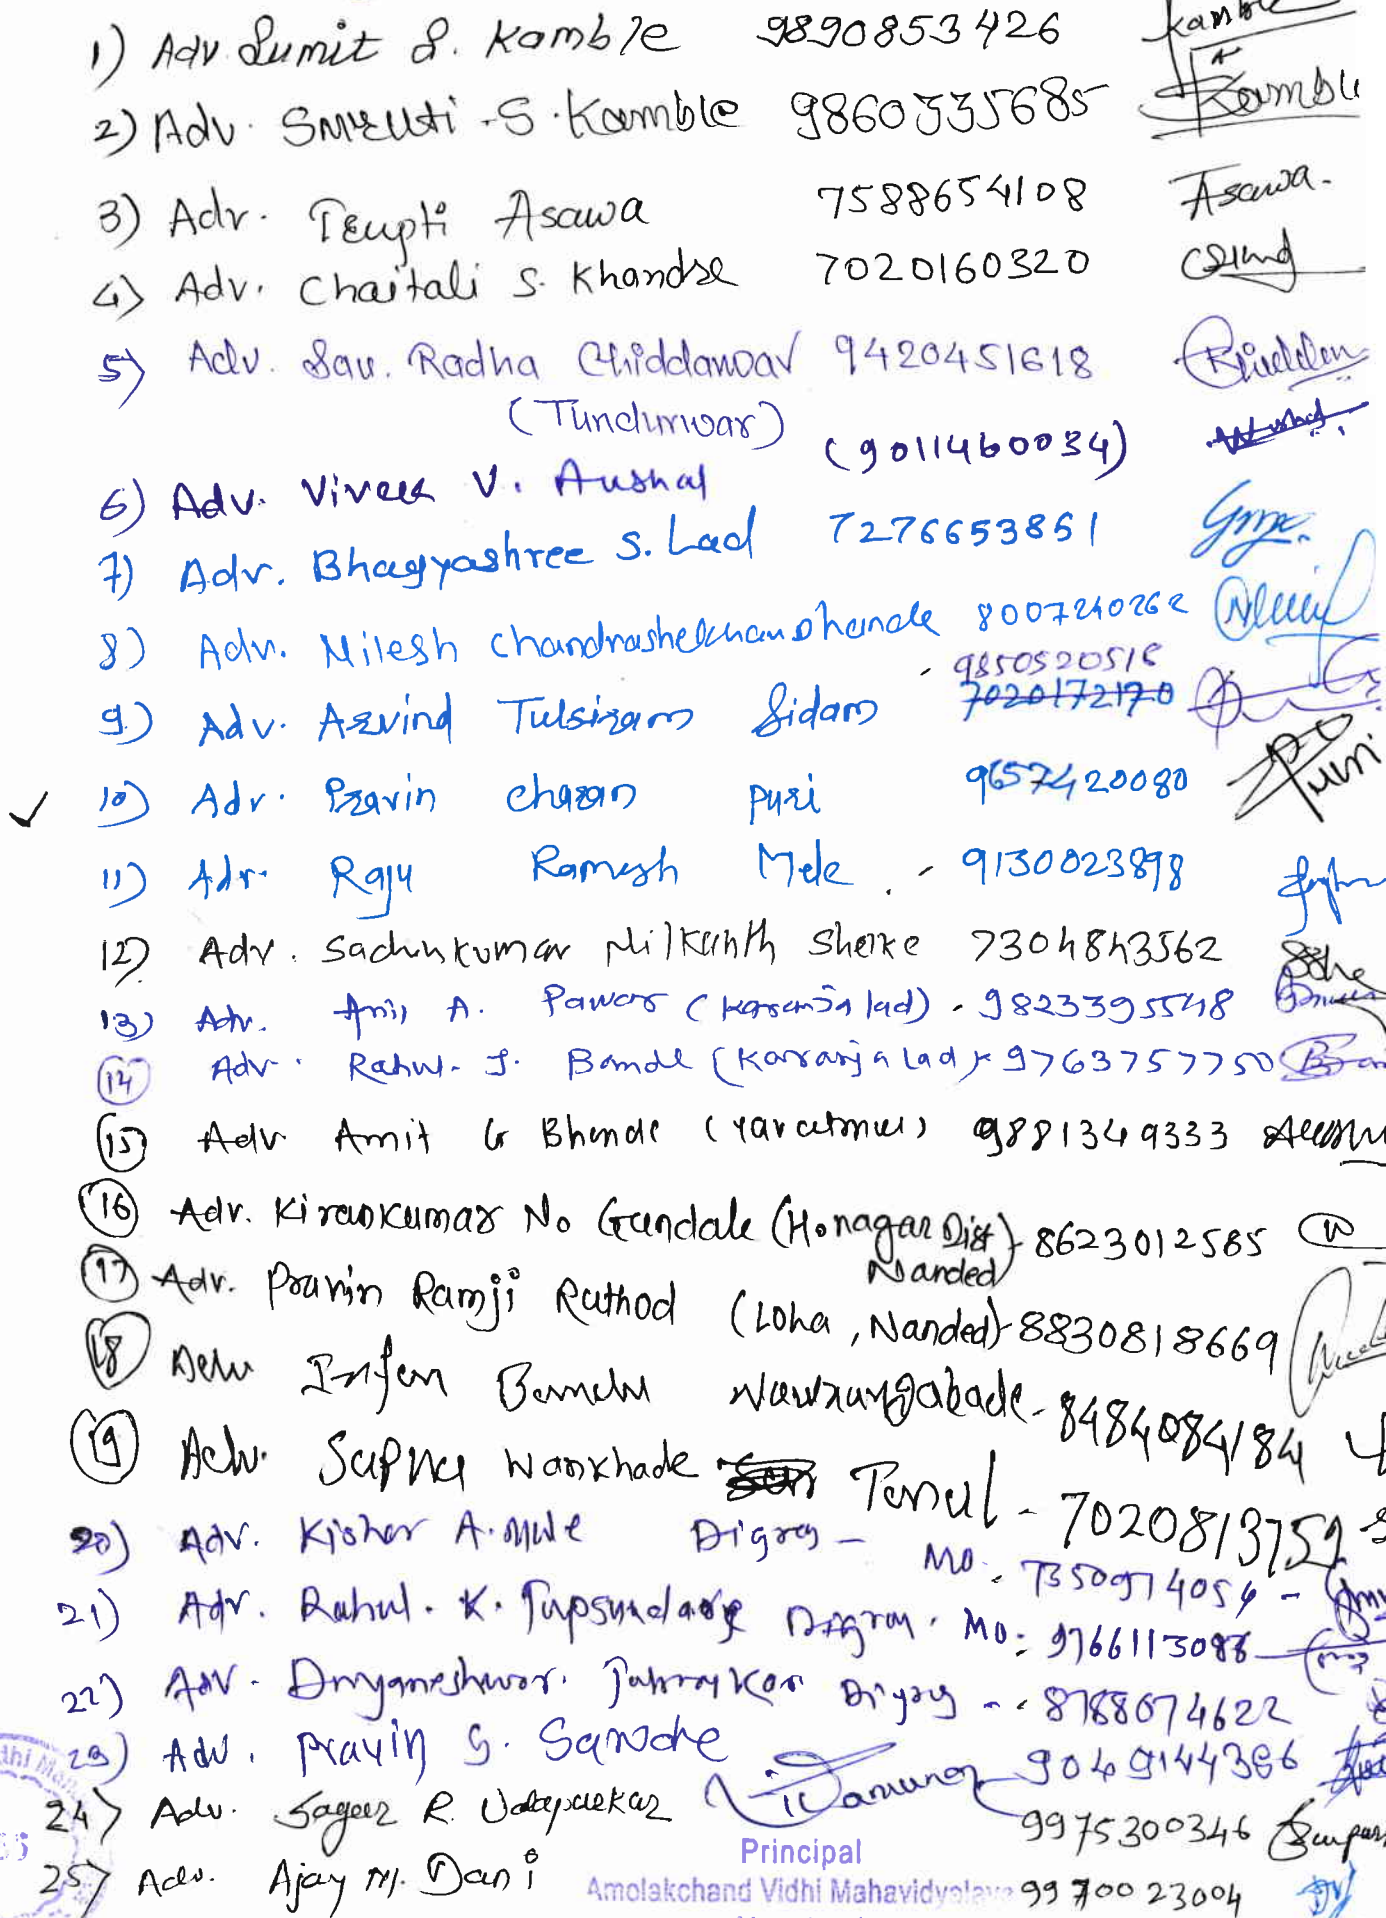 1) Adv. Sumit S. Kamble 9890853426 Kamble
2) Adv. Smruti .S. Kamble 9860535685 Kamble
3) Adv. Trupti Asawa 7588654108 Asawa.
4) Adv. Chaitali S. Khandse 7020160320
5) Adv. Sau. Radha Chiddarwar 9420451618
(Tundurwar)
6) Adv. Vivek V. Aushal (9011460034)
7) Adv. Bhagyashree S. Lad 7276653851
8) Adv. Nilesh Chandrashekhar 8007240262
9850520516
9) Adv. Arvind Tulsiram Sidam 7020172170
10) Adv. Pravin Charan Puri 9657420080 Puri
11) Adv. Raju Ramesh Mele - 9130023898
12) Adv. Sachinkumar Nilkanth Shelke 7304843562
13) Adv. Anil A. Pawar (Karanja lad) - 9823395548
14 Adv. Rahul. J. Bande (Karanja Lad) - 9763757750
15 Adv Amit G Bhende (Yavatmal) 9881349333
16 Adv. Kirankumar No Gandale (Honagar Dist 8623012585
Nanded)
17 Adv. Pravin Ramji Rathod (Loha, Nanded) - 8830818669
18 Adv Irfan - 8484084184
19 Adv. Sapna Wankhade - 7020813759
20) Adv. Kishor A. Mule Digras - Mo. 7350974054 -
21) Adv. Rahul. K. Tapsundare Digras. Mo: 9766113086
22) Adv. Dnyaneshwar. Digras - 8788074622
23) Adv. Pravin S. Sarode 9049144386
24) Adv. Sageer R. 9975300346
Principal
25) Adv. Ajay M. Dani 9970023004
Amolakchand Vidhi Mahavidyalaya